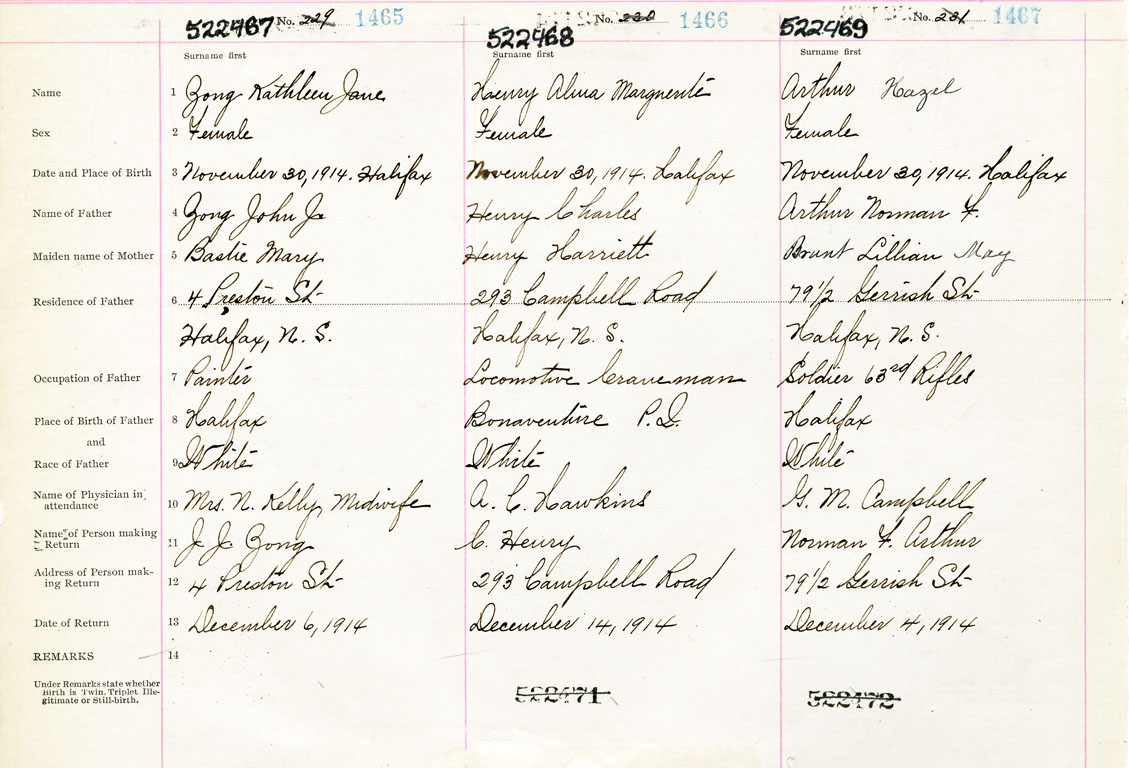 522467 No. 229 1465 522468 No. 230 1466 522469 No. 231 1467
Surname first Surname first Surname first
Name 1 Zong Kathleen Jane Henry Alma Marguerite Arthur Hazel
Sex 2 Female Female Female
Date and Place of Birth 3 November 30, 1914. Halifax November 30, 1914. Halifax November 30, 1914. Halifax
Name of Father 4 Zong John J. Henry Charles Arthur Norman F.
Maiden name of Mother 5 Bastie Mary Henry Harriett Brunt Lillian May
Residence of Father 6 4 Preston St 293 Campbell Road 79 1/2 Gerrish St
Halifax, N. S. Halifax, N. S. Halifax, N. S.
Occupation of Father 7 Painter Locomotive Craneman Soldier 63rd Rifles
Place of Birth of Father 8 Halifax Bonaventure P.Q. Halifax
and
Race of Father 9 White White White
Name of Physician in attendance 10 Mrs. N. Kelly Midwife A. C. Hawkins G. M. Campbell
Name of Person making Return 11 J. J. Zong C. Henry Norman F. Arthur
Address of Person making Return 12 4 Preston St 293 Campbell Road 79 1/2 Gerrish St
Date of Return 13 December 6, 1914 December 14, 1914 December 4, 1914
REMARKS 14
Under Remarks state whether
Birth is Twin, Triplet Ille-
gitimate or Still-birth.
522471 522472